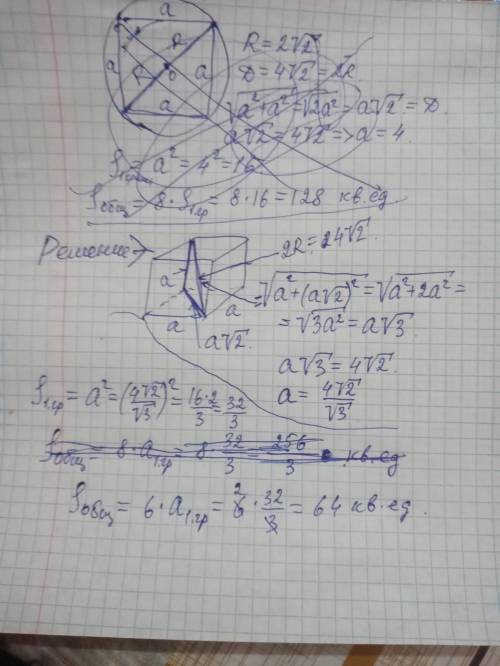 a
R
a
R
0
a
a
R = 2√2
D = 4√2 = 2R
√a²+a² = √2a² = a√2 = D.
a√2 = 4√2 => a = 4.
S1гран = a² = 4² = 16
Sобщ = 8·S1гр = 8·16 = 128 кв.ед
Решение
2R = 24√2.
a
a
a
a√2.
√a²+(a√2)² = √a²+2a² =
= √3a² = a√3
a√3 = 4√2
a = 4√2/√3
S1.гр = a² = (4√2/√3)² = 16·2/3 = 32/3
Sобщ = 8·a1.гр = 8 32/3 = 256/3 кв.ед
Sобщ = 6·a1.гр = 6 2 · 32/3 = 64 кв.ед.